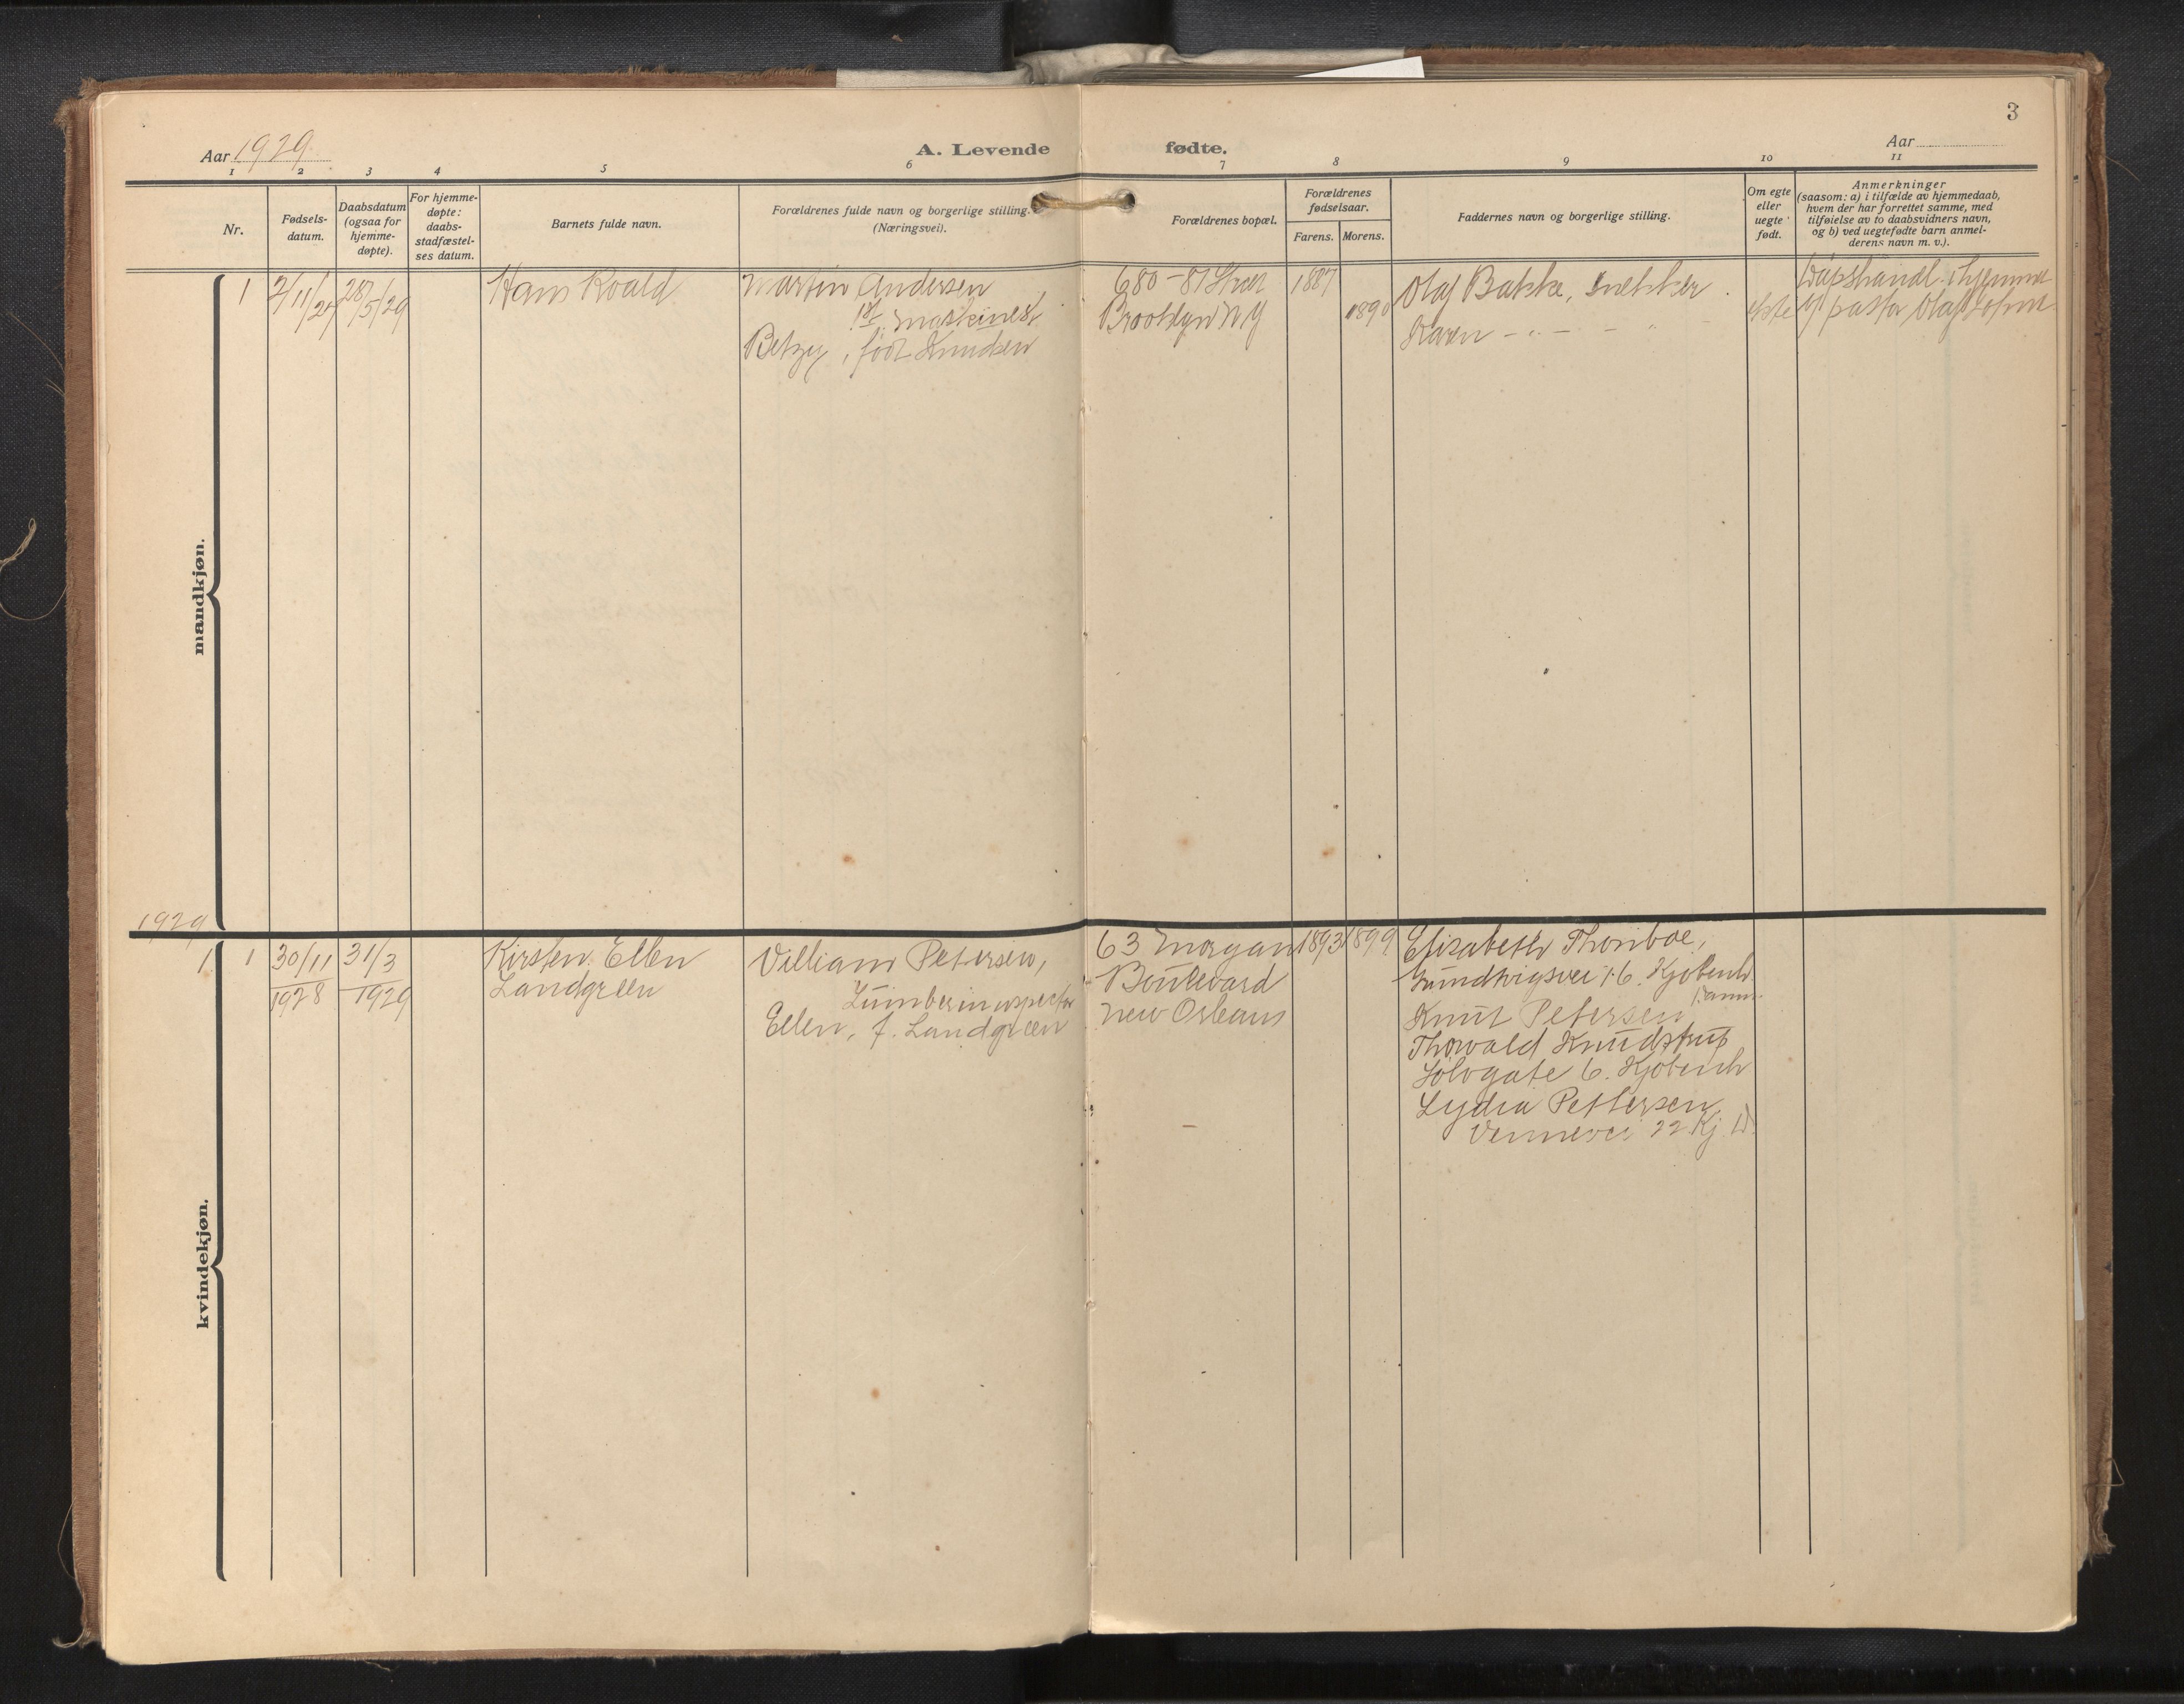 3
Aar 1929
A. Levende fødte.
Aar
1 2 3 4 5 6 7 8 9 10 11
Nr.
Fødsels-
datum.
Daabsdatum
(ogsaa for
hjemme-
døpte).
For hjemme-
døpte:
daabs-
stadfæstel-
ses datum.
Barnets fulde navn.
Forældrenes fulde navn og borgerlige stilling.
(Næringsvei).
Forældrenes bopæl.
Forældrenes
fødselsaar.
Farens. Morens.
Faddernes navn og borgerlige stilling.
Om egte
eller
uegte
født.
Anmerkninger
(saasom: a) i tilfælde av hjemmedaab,
hvem der har forrettet samme, med
tilføielse av to daabsvidners navn,
og b) ved uegtefødte barn anmel-
derens navn m. v.).
mandkjøn.
1
28/5/29
Hans Roald
Martin Andersen
1st maskinest
Betzy, født Knudsen
680 – 81 Street
Brooklyn N Y
1887
1890
Olaf Bakke, snekker
Karen – " – – " –
ekte
Dåpshandl. i hjemmet
v/ pastor Olaf
1929
kvindekjøn.
1
1
30/11
1928
31/3
1929
Kirsten Ellen
Landgreen
Villiam Petersen,
Lumberinspector
Ellen, f. Landgreen
63 Morgan
Boulevard
New Orleans
1893
1899
Elisabeth Thonboe,
Grundtvigsvei 16. Kjøbenh.
Danm.
Knut Petersen
Thorvald Knudstrup
Sølvgate 6. Kjøbenh
Lydia Pettersen
Vennevei 22 Kj. D.